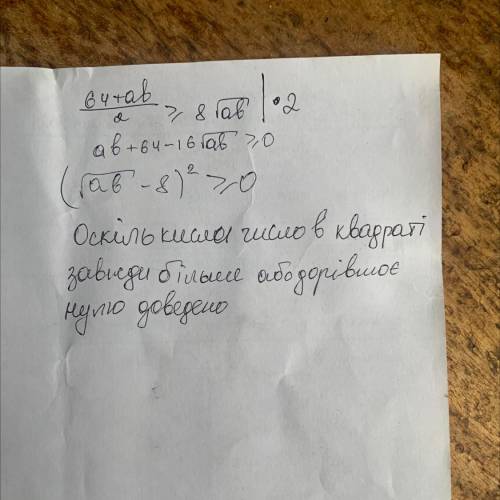 64+ab/2 ≥ 8√ab | •2
ab+64-16√ab ≥0
(√ab -8)² ≥0
Оскільки число в квадраті
завжди більше або дорівнює
нулю доведено